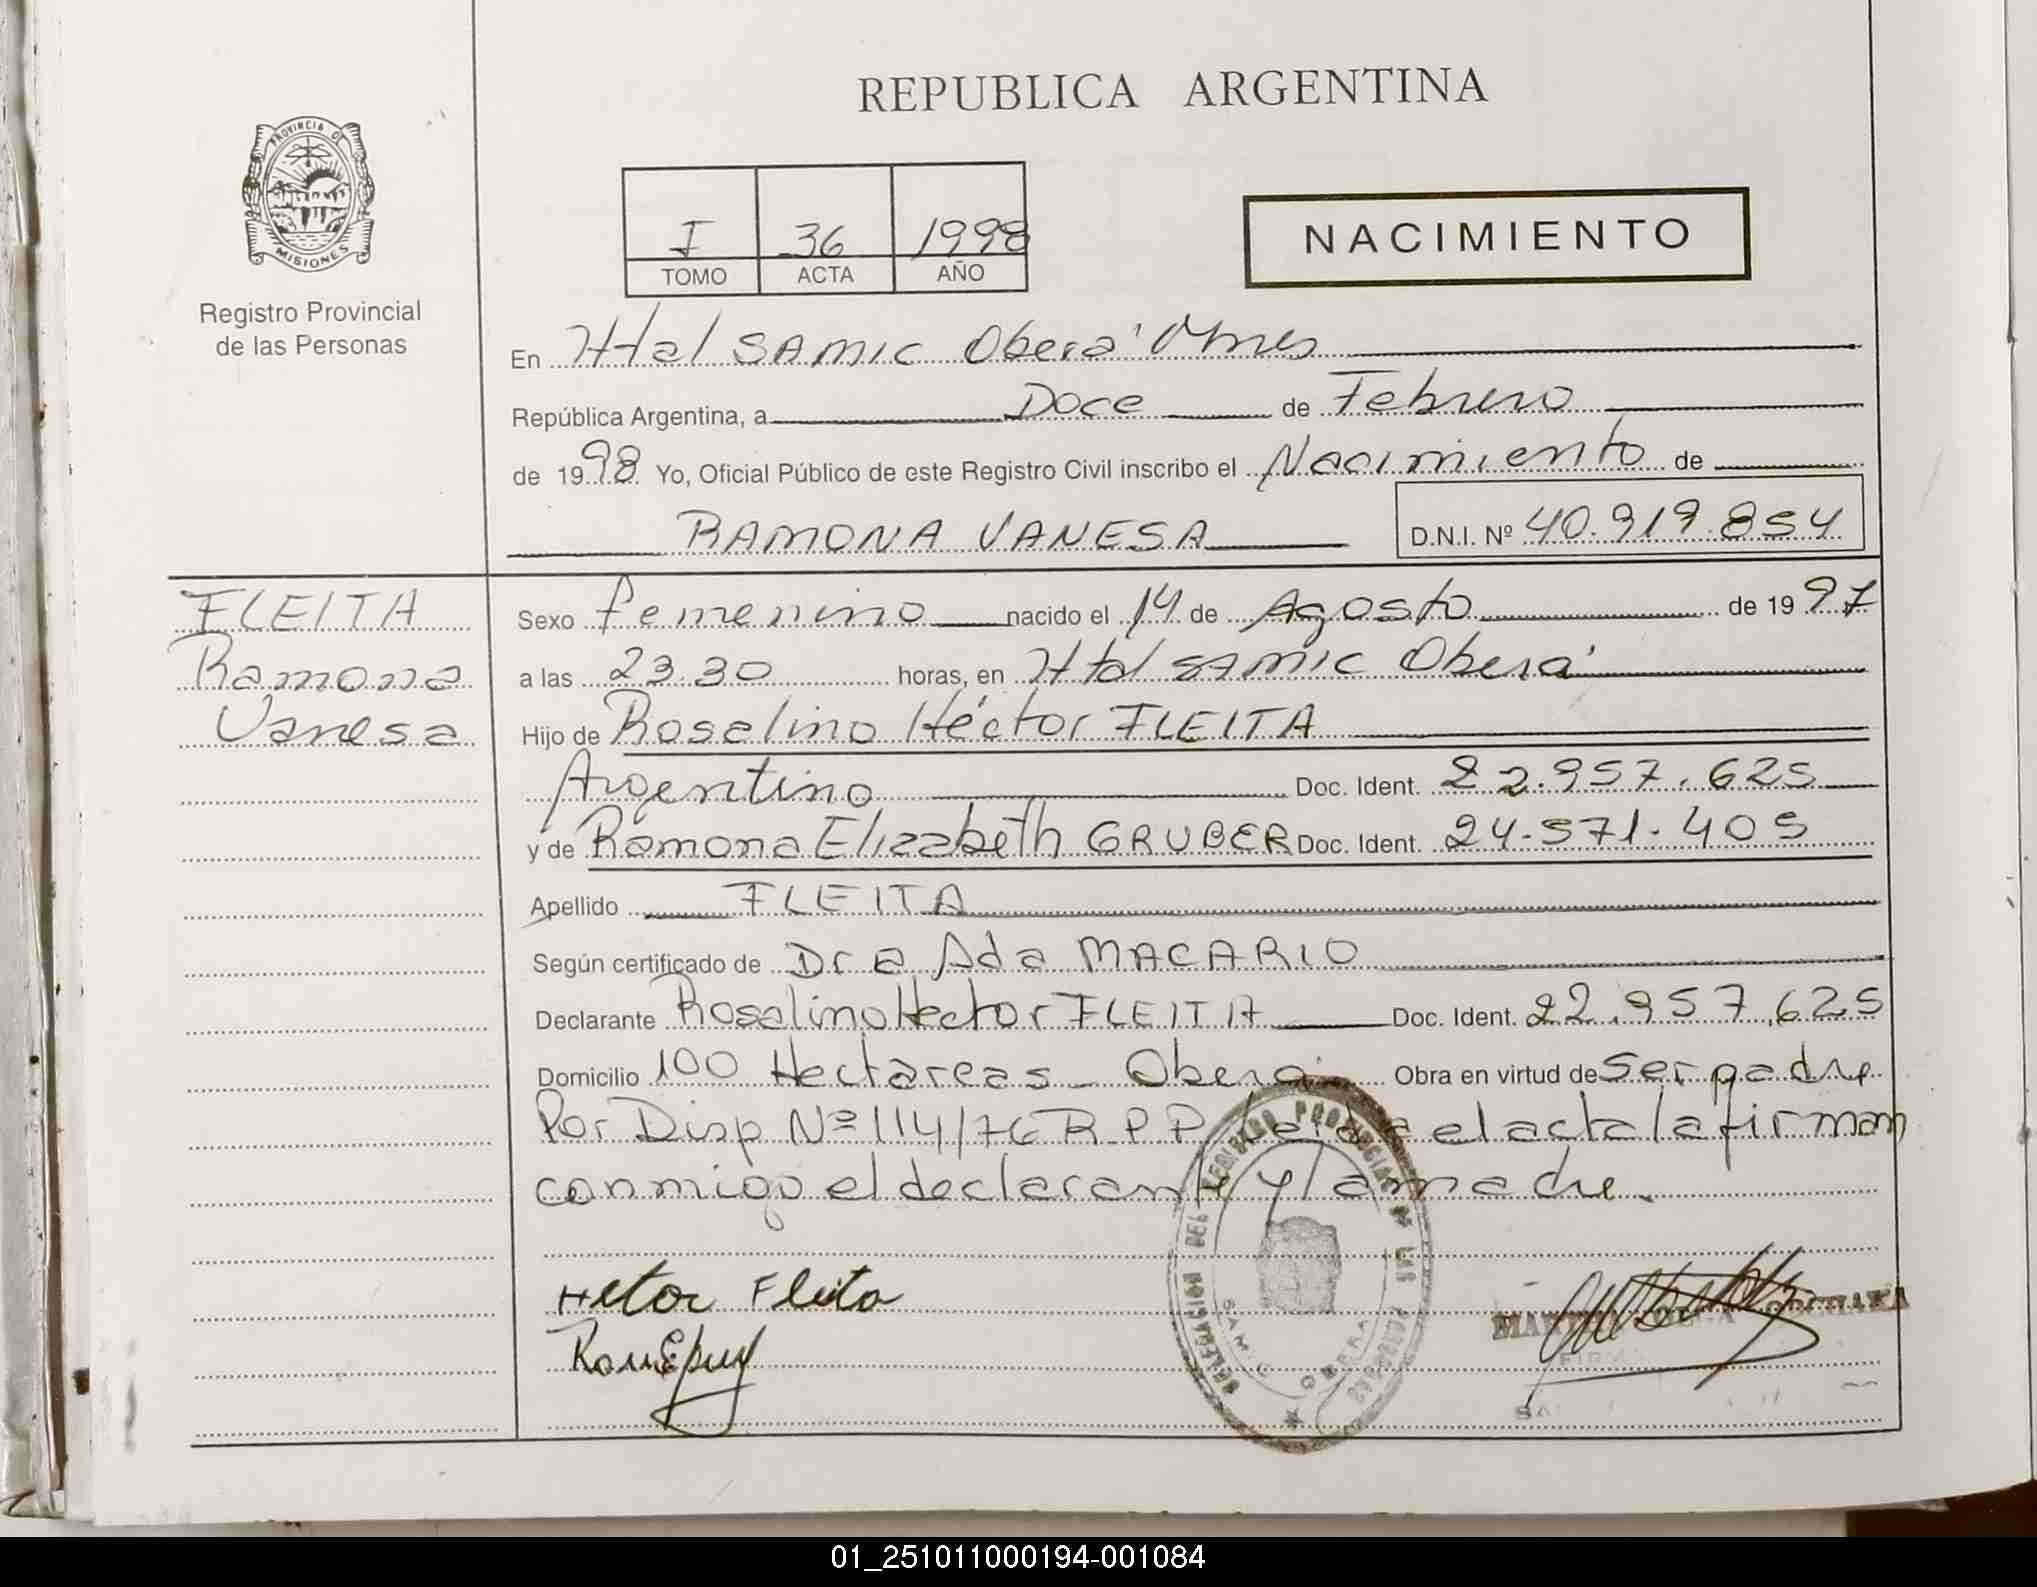 REPUBLICA ARGENTINA
PROVINCIA DE
MISIONES
Registro Provincial
de las Personas
I 36 1998
TOMO ACTA AÑO
NACIMIENTO
En Htal SAMIC Oberá Mnes
República Argentina, a Doce de Febrero
de 1998 Yo, Oficial Público de este Registro Civil inscribo el Nacimiento de
RAMONA VANESA D.N.I. Nº 40.919.854
FLEITA
Ramona
Vanesa
Sexo femenino nacido el 14 de Agosto de 1997
a las 23.30 horas, en Htal SAMIC Oberá
Hijo de Rosalino Héctor FLEITA
Argentino Doc. Ident. 22.957.625
y de Ramona Elizabeth GRUBER Doc. Ident. 24.571.405
Apellido FLEITA
Según certificado de Dra Ada MACARIO
Declarante Rosalino Hector FLEITA Doc. Ident. 22.957.625
Domicilio 100 Hectareas - Oberá Obra en virtud de ser padre
Por Disp Nº 114/76 R.P.P. Leida el acta la firman
conmigo el declarante y la madre.
Hetor Fleita
DELEGACION DEL REGISTRO PROVINCIAL DE LAS PERSONAS
SAMIC OBERA
01_251011000194-001084